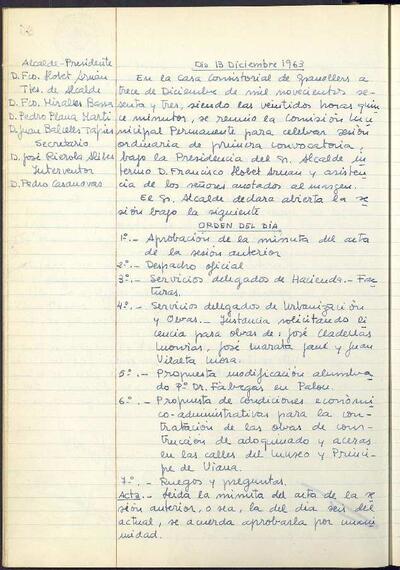 Alcalde-Presidente
D. Fco. Llobet Arnán
Ttes. de Alcalde
D. Fco. Miralles Bassa
D. Pedro Plana Martí
D. Juan Balcells Tapias
Secretario
D. José Rierola
Interventor
D. Pedro Casanovas
Día 13 Diciembre 1963
En la Casa Consistorial de Granollers a
trece de Diciembre de mil novecientos se-
senta y tres, siendo las veintidos horas quin
ce minutos, se reunio la Comisión Mu
nicipal Permanente para celebrar sesión
ordinaria de primera convocatoria,
bajo la Presidencia del Sr. Alcalde in
terino D. Francisco Llobet Arnan y asisten-
cia de los señores anotados al margen.
El Sr. Alcalde declara abierta la se
sión bajo la siguiente
ORDEN DEL DIA
1º.- Aprobación de la minuta del acta
de la sesión anterior
2º.- Despacho oficial
3º.- Servicios delegados de Hacienda.- Fac-
turas.
4º.- Servicios delegados de Urbanización
y Obras.- Instancia solicitando li
cencia para obras de: José Cladellas
José Marata Jané y Juan
Vilalta Mora.
5º.- Propuesta modificación alumbra-
do Pº. Dr. Fabregas en Palou.
6º.- Propuesta de condiciones económi-
co-administrativas para la con-
tratación de las obras de cons-
trucción de adoquinado y aceras
en las calles del Museo y Prínci-
pe de Viana.
7º.- Ruegos y preguntas.
Acta.- Leída la minuta del acta de la se
sión anterior, o sea, la del día seis del
actual, se acuerda aprobarla por unani
midad.